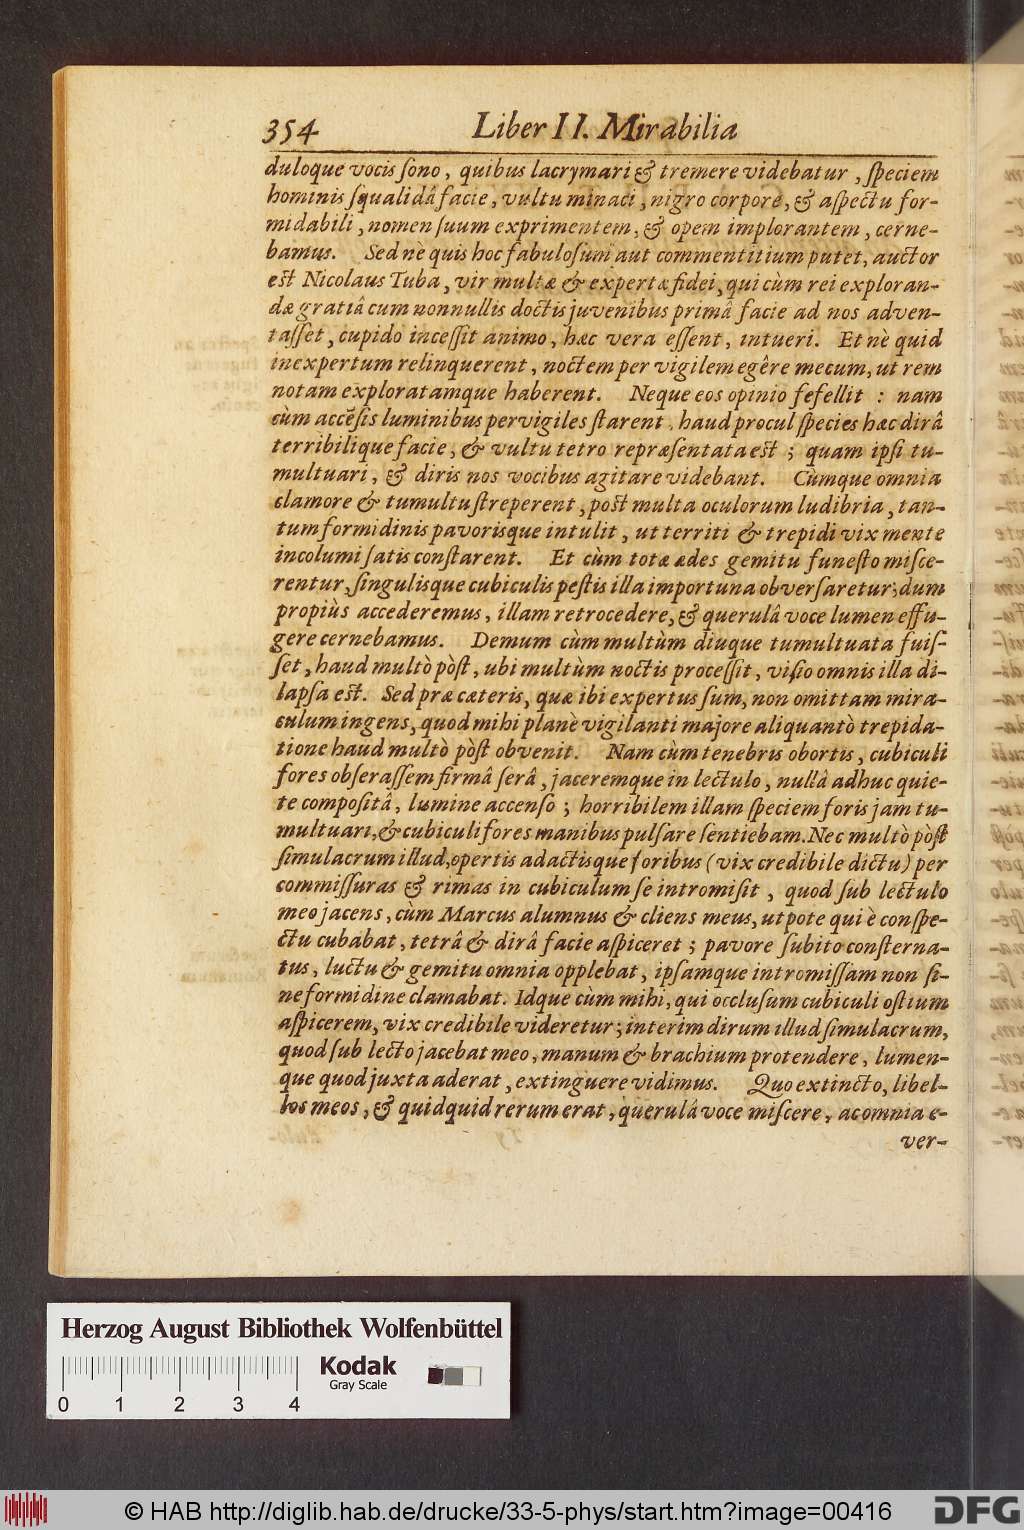 354 Liber II. Mirabilia
duloque vocis sono, quibus lacrymari & tremere videbatur, speciem
hominis squalidâ facie, vultu minaci, nigro corpore, & aspectu for-
midabili, nomen suum exprimentem, & opem implorantem, cerne-
bamus. Sed nè quis hoc fabulosum aut commentitium putet, auctor
est Nicolaus Tuba, vir multæ & expertæ fidei, qui cùm rei exploran-
dæ gratiâ cum nonnullis doctis juvenibus primâ facie ad nos adven-
tasset, cupido incessit animo, hæc vera essent, intueri. Et nè quid
inexpertum relinquerent, noctem per vigilem egêre mecum, ut rem
notam exploratamque haberent. Neque eos opinio fefellit : nam
cùm accēsis luminibus pervigiles starent, haud procul species hæc dirâ
terribilique facie, & vultu tetro repræsentata est ; quam ipsi tu-
multuari, & diris nos vocibus agitare videbant. Cùmque omnia
clamore & tumultu streperent, post multa oculorum ludibria, tan-
tum formidinis pavorisque intulit, ut territi & trepidi vix mente
incolumi satis constarent. Et cùm totæ ædes gemitu funesto misce-
rentur, singulisque cubiculis pestis illa importuna obversaretur; dum
propiùs accederemus, illam retrocedere, & querulâ voce lumen effu-
gere cernebamus. Demum cùm multùm diuque tumultuata fuis-
set, haud multò pòst, ubi multùm noctis processit, visio omnis illa di-
lapsa est. Sed præ cæteris, quæ ibi expertus sum, non omittam mira-
culum ingens, quod mihi planè vigilanti majore aliquantò trepida-
tione haud multò pòst obvenit. Nam cùm tenebris obortis, cubiculi
fores obserassem firmâ serâ, jaceremque in lectulo, nullâ adhuc quie-
te compositâ, lumine accenso ; horribilem illam speciem foris jam tu-
multuari, & cubiculi fores manibus pulsare sentiebam. Nec multò pòst
simulacrum illud, opertis adactisque foribus (vix credibile dictu) per
commissuras & rimas in cubiculum se intromisit, quod sub lectulo
meo jacens, cùm Marcus alumnus & cliens meus, utpote qui è conspe-
ctu cubabat, tetrâ & dirâ facie aspiceret ; pavore subito consterna-
tus, luctu & gemitu omnia opplebat, ipsamque intromissam non si-
ne formidine clamabat. Idque cùm mihi, qui occlusum cubiculi ostium
aspicerem, vix credibile videretur; interim dirum illud simulacrum,
quod sub lecto jacebat meo, manum & brachium protendere, lumen-
que quod juxta aderat, extinguere vidimus. Quo extincto, libel-
los meos, & quidquid rerum erat, querulâ voce miscere, ac omnia e-
ver-
Herzog August Bibliothek Wolfenbüttel
Kodak
Gray Scale
0 1 2 3 4
© HAB http://diglib.hab.de/drucke/33-5-phys/start.htm?image=00416
DFG